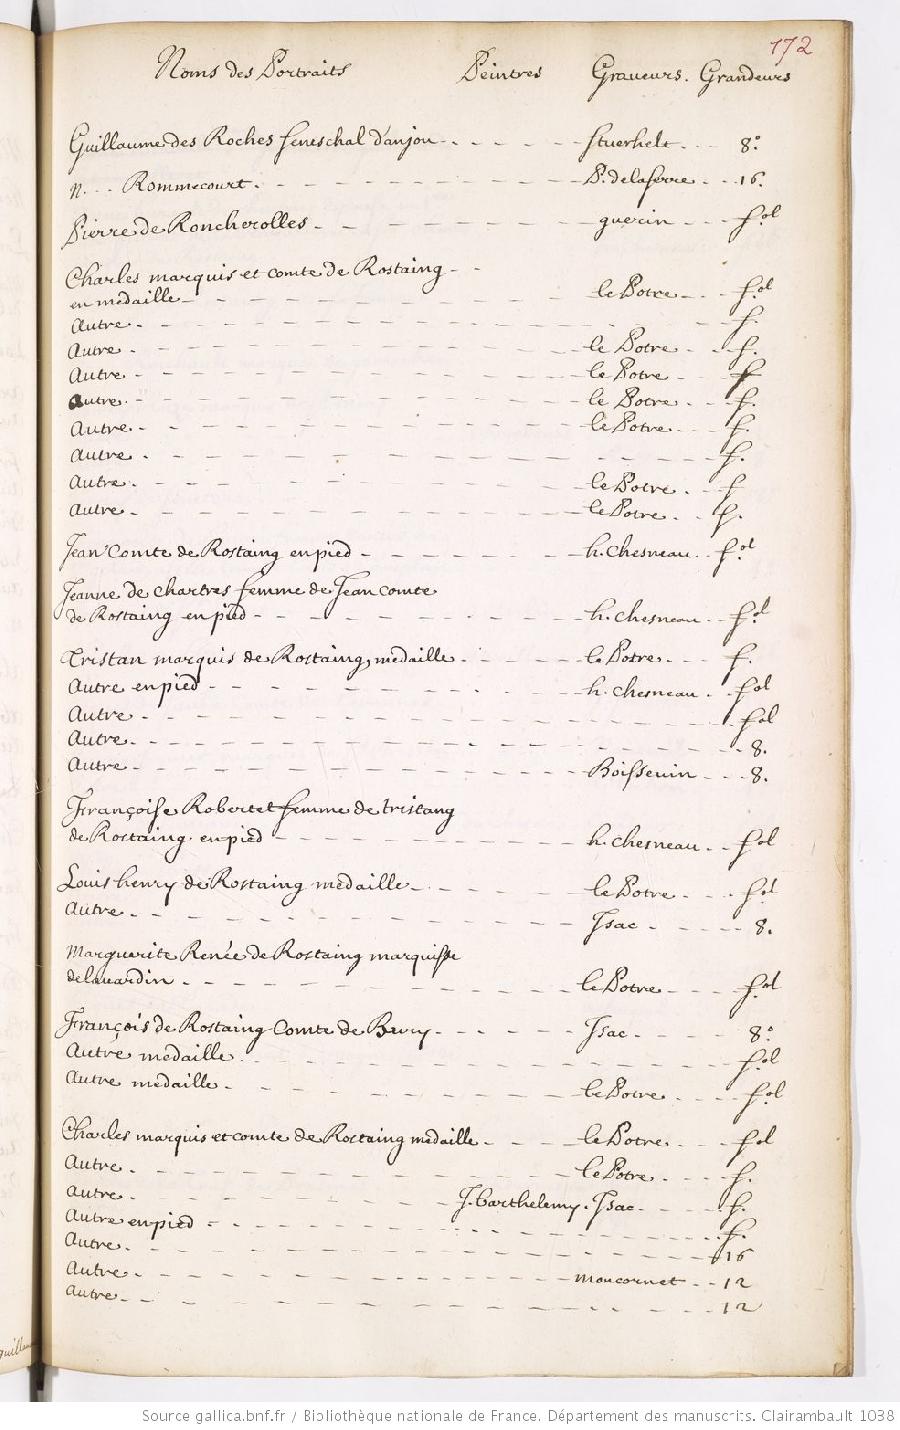 172
Noms des Portraits Peintres Graveurs. Grandeurs
Guillaume des Roches seneschal d'anjou Stuerhelt 8.º
N. Rommecourt. P. delaserre 16.
Pierre de Roncherolles guerin fol
Charles marquis et comte de Rostaing
en medaille le Potre fol
Autre f.
Autre le Potre f.
Autre le Potre f
autre le Potre f.
Autre le Potre f.
Autre f.
Autre le Potre f
Autre le Potre f.
Jean Comte de Rostaing en pied h. chesneau fol
Jeanne de chartres femme de Jean comte
de Rostaing en pied h. chesneau fol
Tristan marquis de Rostaing medaille le Potre f.
Autre en pied h. chesneau fol
Autre fol
Autre 8.
Autre Boissevin 8.
Françoise Robertet femme de tristang
de Rostaing en pied h. chesneau fol
Louis henry de Rostaing medaille le Potre fol
Autre Jsac 8.
Marguerite Renée de Rostaing marquise
de lavardin le Potre fol
François de Rostaing Comte de Bury Jsac 8.º
Autre medaille fol
Autre medaille le Potre fol
Charles marquis et comte de Rostaing medaille le Potre fol
Autre le Potre f.
Autre J. barthelemy. Jsac f.
Autre en pied f.
Autre 16
Autre Moncornet 12
Autre 12
Source gallica.bnf.fr / Bibliothèque nationale de France. Département des manuscrits. Clairambault 1038